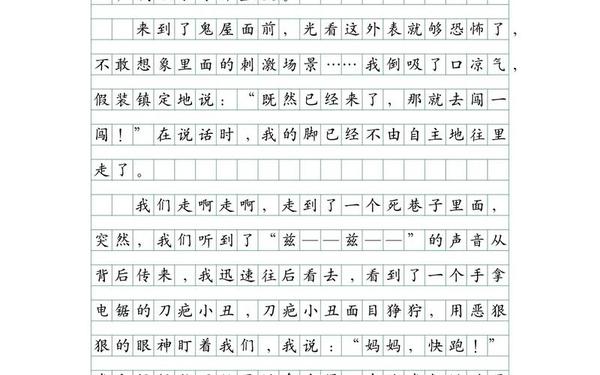 来到了鬼屋面前，光看这外表就够恐怖了，
不敢想象里面的刺激场景……我倒吸了口凉气，
假装镇定地说：“既然已经来了，那就去闯一
闯！”在说话时，我的脚已经不由自主地往里
走了。
我们走啊走啊，走到了一个死巷子里面，
突然，我们听到了“兹——兹——”的声音从
背后传来，我迅速往后看去，看到了一个手拿
电锯的刀疤小丑，刀疤小丑面目狰狞，用恶狠
狠的眼神盯着我们，我说：“妈妈，快跑！”